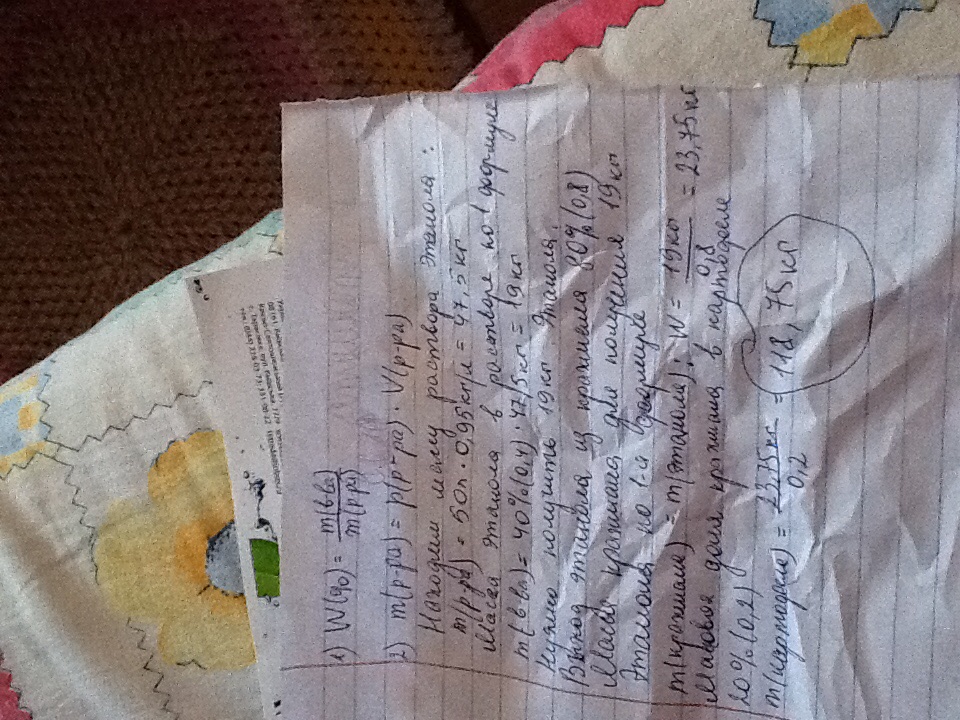 1) W(%) = m(в-ва) / m(р-ра)
2) m(р-ра) = ρ(р-ра) · V(р-ра)
Находим массу раствора этанола:
m(р-ра) = 50л · 0,95кг/л = 47,5 кг
Масса этанола в растворе по 1 формуле
m(в-ва) = 40%(0,4) · 47,5кг = 19 кг
Нужно получить 19 кг этанола,
Выход этанола из крахмала 80%(0,8)
Массы крахмала для получения 19 кг
Этанола по 1-й формуле
m(крахмала) = m(этанола) : W = 19кг / 0,8 = 23,75 кг
Массовая доля крахмала в картофеле
20% (0,2)
m(картофеля) = 23,75кг / 0,2 = 118,75 кг